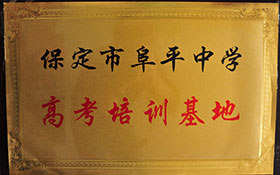 保定市阜平中学
高考培训基地